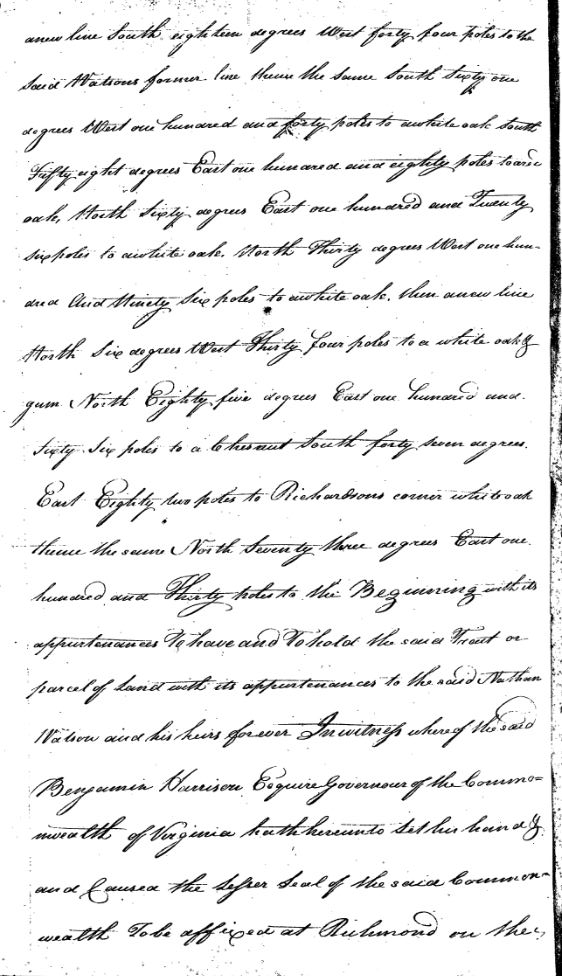 anew line South eighteen degrees West forty four poles to the
said Watsons former line thence the same South Sixty one
degrees West one hundred and forty poles to awhite oak South
Fifty eight degrees East one hundred and eighty poles to a red
oak, North Sixty degrees East one hundred and Twenty
six poles to awhite oak. North Thirty degrees West one hun-
dred And Ninety Six poles to awhite oak. then anew line
North Six degrees West Thirty four poles to a white oak &
gum North Eighty five degrees East one hundred and.
Sixty Six poles to a Chesnut South forty seven degrees.
East Eighty two poles to Richardsons corner white oak
thence the same North Seventy three degrees East one.
hundred and Thirty poles to the Beginning with its
appurtenances To have and To hold the said Tract or
parcel of Land with its appurtenances to the said Nathan
Watson and his heirs forever In witness whereof the said
Benjamin Harrison Esquire Governour of the Commo=
nwealth of Virginia hath hereunto Set his hand &.
and Caused the Lesser Seal of the said Common-
wealth To be affixed at Richmond on the